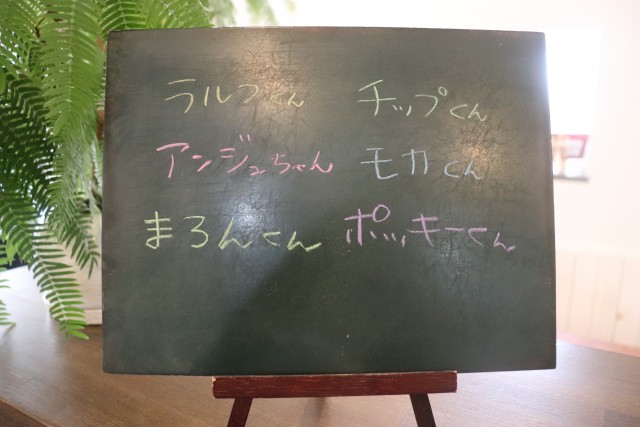 ラルフくん チップくん
アンジュちゃん モカくん
まろんくん ポッキーくん